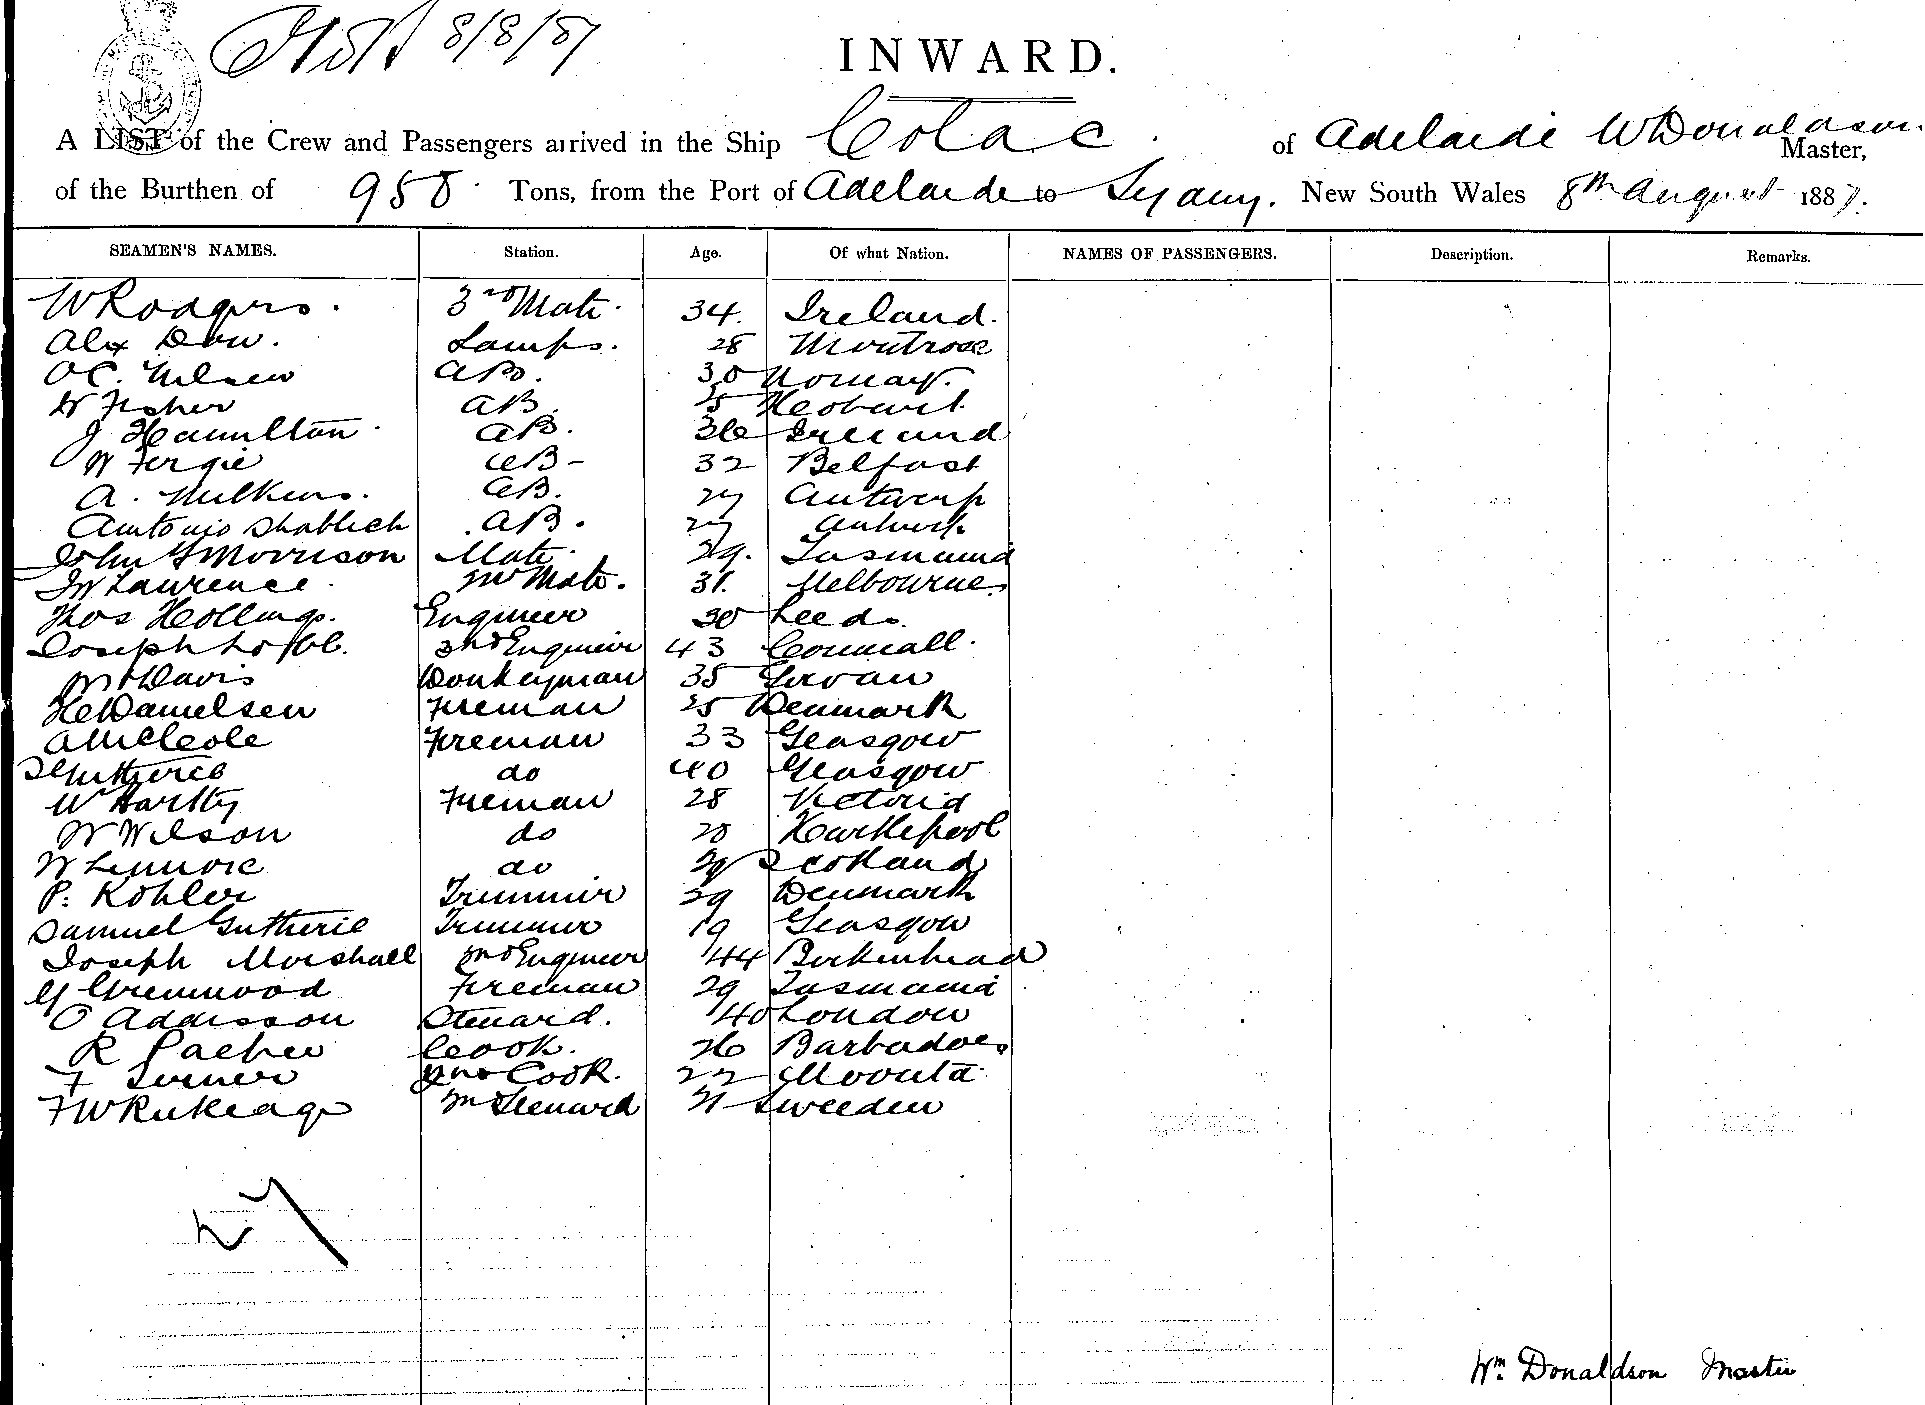 8/8/87
INWARD.
A LIST of the Crew and Passengers arrived in the Ship Colac of Adelaide W Donaldson Master,
of the Burthen of 958 Tons, from the Port of Adelaide to Sydney. New South Wales 8th August 1887.
SEAMEN'S NAMES. Station. Age. Of what Nation. NAMES OF PASSENGERS. Description. Remarks.
W Rodgers. 3rd Mate. 34. Ireland.
Alex Dow. Lamps. 28 Montrose
O C. Nilsen AB. 30 Norway.
W Fisher AB. Hobart.
J Hamilton AB. 36 Ireland
W Fergie AB- 32 Belfast
A. AB. 27 Antwerp
Antonio Shablich AB. 27 Antwerp.
John Morrison Mate. 29. Tasmania
Lawrence 2nd Mate. 31. Melbourne.
Thos Hollings. Engineer 30 Leeds.
Joseph Engineer 43 Cornwall.
Davis Donkeyman 35 Girvan
H Danielsen Fireman 25 Denmark
A McLeole Fireman 33 Glasgow
Gutherie do 40 Glasgow
W Hartley Fireman 28 Victoria
W Wilson do 28 Hartlepool
W Lennore do Scotland
P. Kohler Trimmer 29 Denmark
Samuel Gutherie Trimmer 19 Glasgow
Joseph Marshall 2nd Engineer 44 Birkenhead
G Greenwood Fireman 29 Tasmania
O Addisson Steward. 40 London
R Cook. 26 Barbadoes
F Turner 2nd Cook. 22 Moonta
F W 2nd Steward 21 Sweeden
27
Wm. Donaldson Master